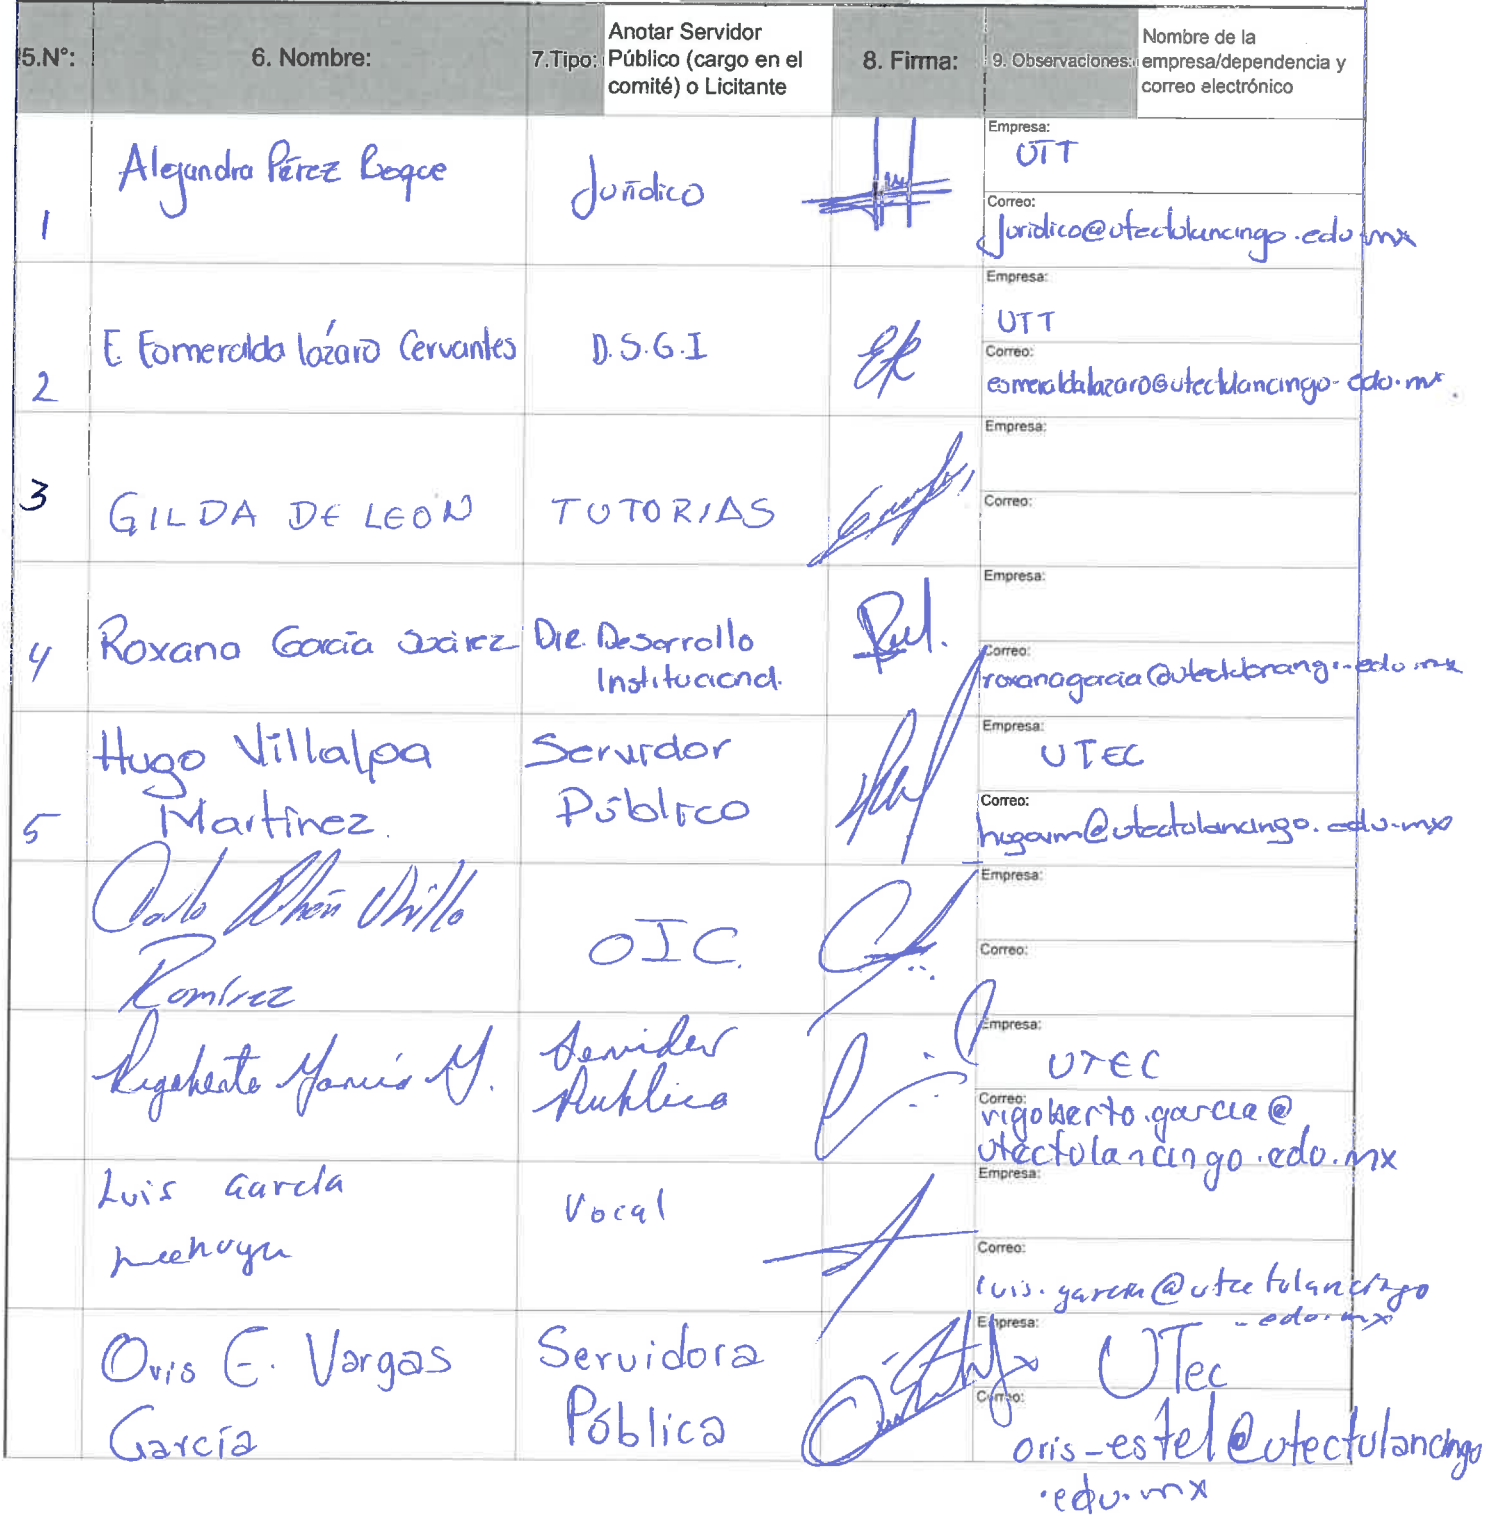 5.N°: 6. Nombre: 7.Tipo: Anotar Servidor Público (cargo en el comité) o Licitante 8. Firma: 9. Observaciones: Nombre de la empresa/dependencia y correo electrónico
1 Alejandra Pérez Jurídico
Empresa: UTT
Correo: juridico@utectulancingo.edu.mx
2 E. Esmeralda Lázaro Cervantes D.S.G.I
Empresa: UTT
Correo: esmeraldalazaro@utectulancingo.edu.mx
3 GILDA DE LEON TUTORIAS
Empresa:
Correo:
4 Roxana García Suárez Dir. Desarrollo
Institucional.
Empresa:
Correo: roxanagarcia@utectulancingo.edu.mx
5 Hugo Villalpa
Martínez
Servidor
Público
Empresa: UTEC
Correo: hugovm@utectulancingo.edu.mx
Ramírez
OIC.
Empresa:
Correo:
Rigoberto García M.
Servidor
Publico
Empresa: UTEC
Correo: rigoberto.garcia@
utectulancingo.edu.mx
Luis García
Vocal
Empresa:
Correo:
luis.garcia@utectulancingo
.edu.mx
Oris E. Vargas
García
Servidora
Pública
Empresa: UTec
Correo:
oris-estel@utectulancingo
.edu.mx